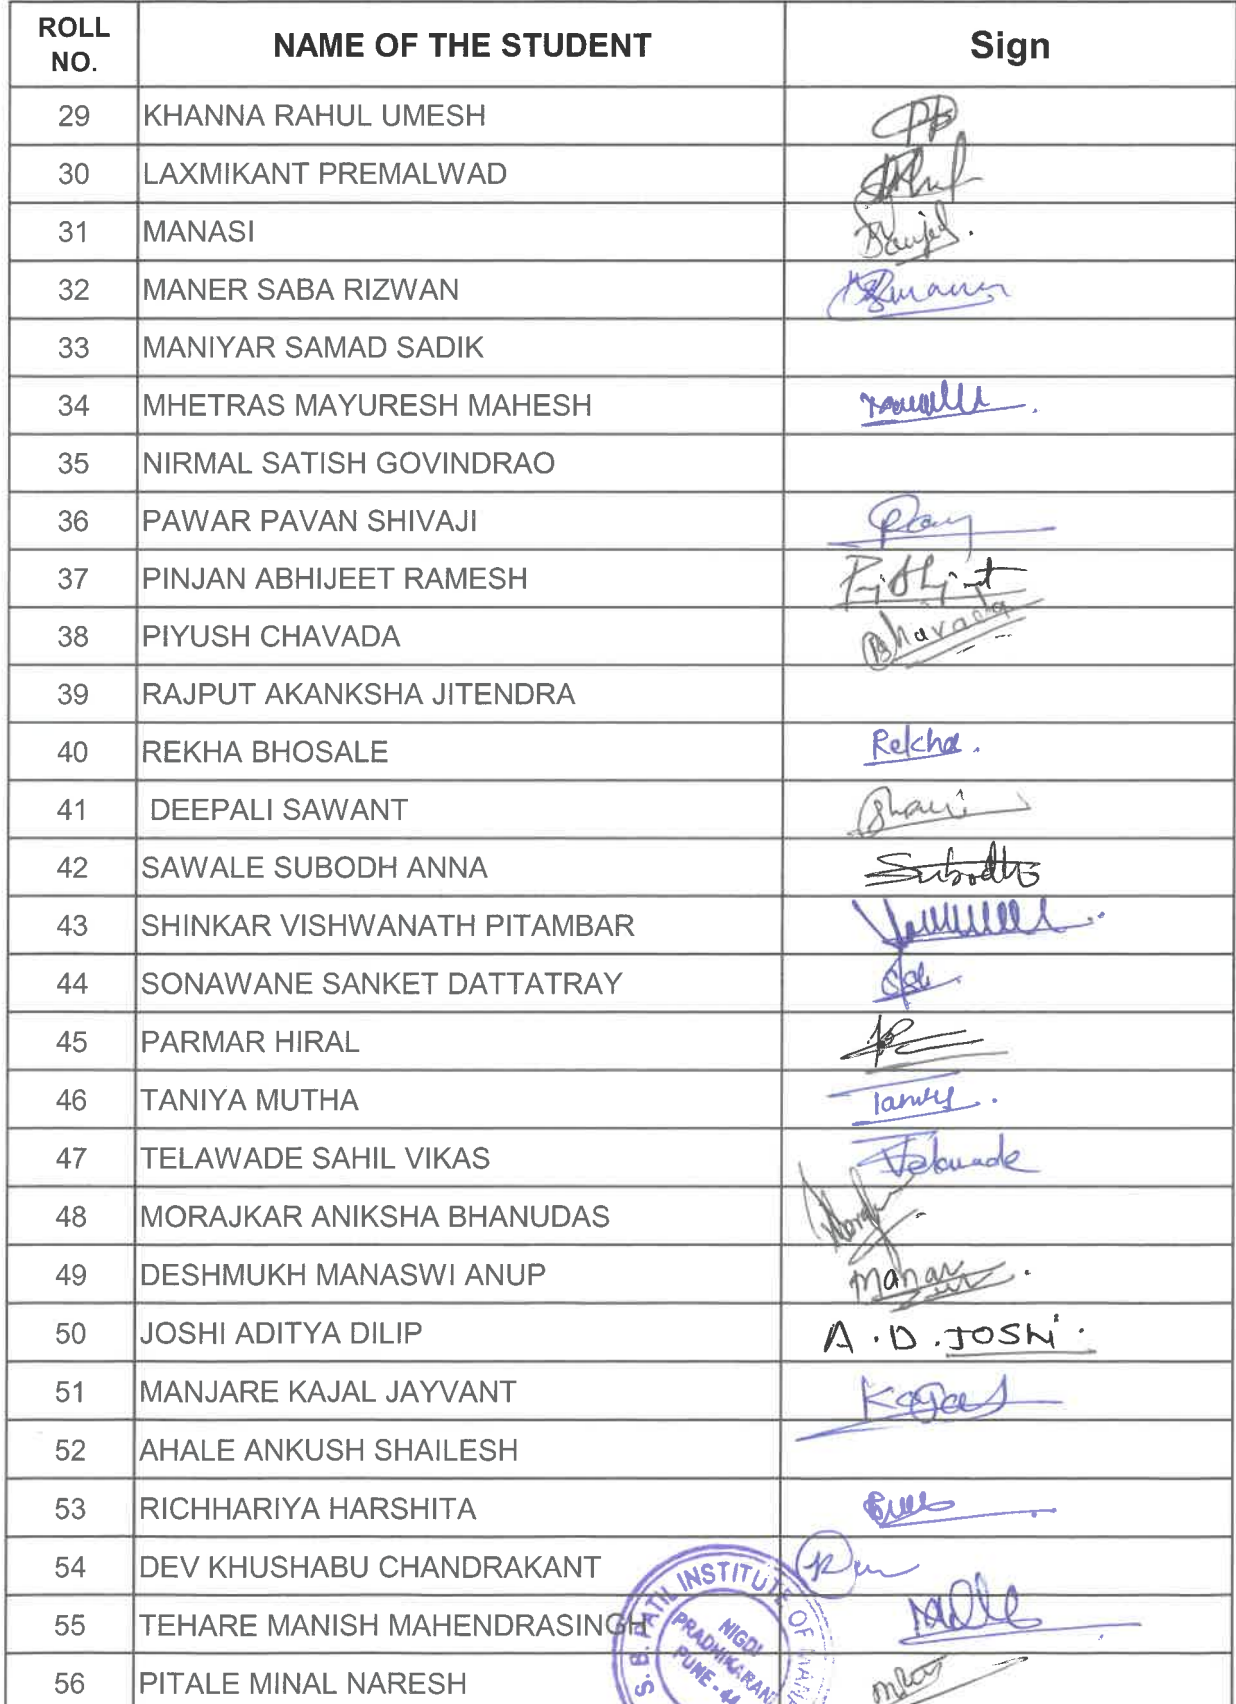 ROLL NO. NAME OF THE STUDENT Sign
29 KHANNA RAHUL UMESH
30 LAXMIKANT PREMALWAD
31 MANASI
32 MANER SABA RIZWAN
33 MANIYAR SAMAD SADIK
34 MHETRAS MAYURESH MAHESH
35 NIRMAL SATISH GOVINDRAO
36 PAWAR PAVAN SHIVAJI
37 PINJAN ABHIJEET RAMESH
38 PIYUSH CHAVADA
39 RAJPUT AKANKSHA JITENDRA
40 REKHA BHOSALE Rekha.
41 DEEPALI SAWANT
42 SAWALE SUBODH ANNA Subodh
43 SHINKAR VISHWANATH PITAMBAR
44 SONAWANE SANKET DATTATRAY
45 PARMAR HIRAL
46 TANIYA MUTHA
47 TELAWADE SAHIL VIKAS Telawade
48 MORAJKAR ANIKSHA BHANUDAS
49 DESHMUKH MANASWI ANUP
50 JOSHI ADITYA DILIP A.D.JOSHi.
51 MANJARE KAJAL JAYVANT Kajal
52 AHALE ANKUSH SHAILESH
53 RICHHARIYA HARSHITA
54 DEV KHUSHABU CHANDRAKANT
55 TEHARE MANISH MAHENDRASINGH
56 PITALE MINAL NARESH
S. B. PATIL INSTITUTE OF MANA
NIGDI
PRADHIKARAN
PUNE - 44